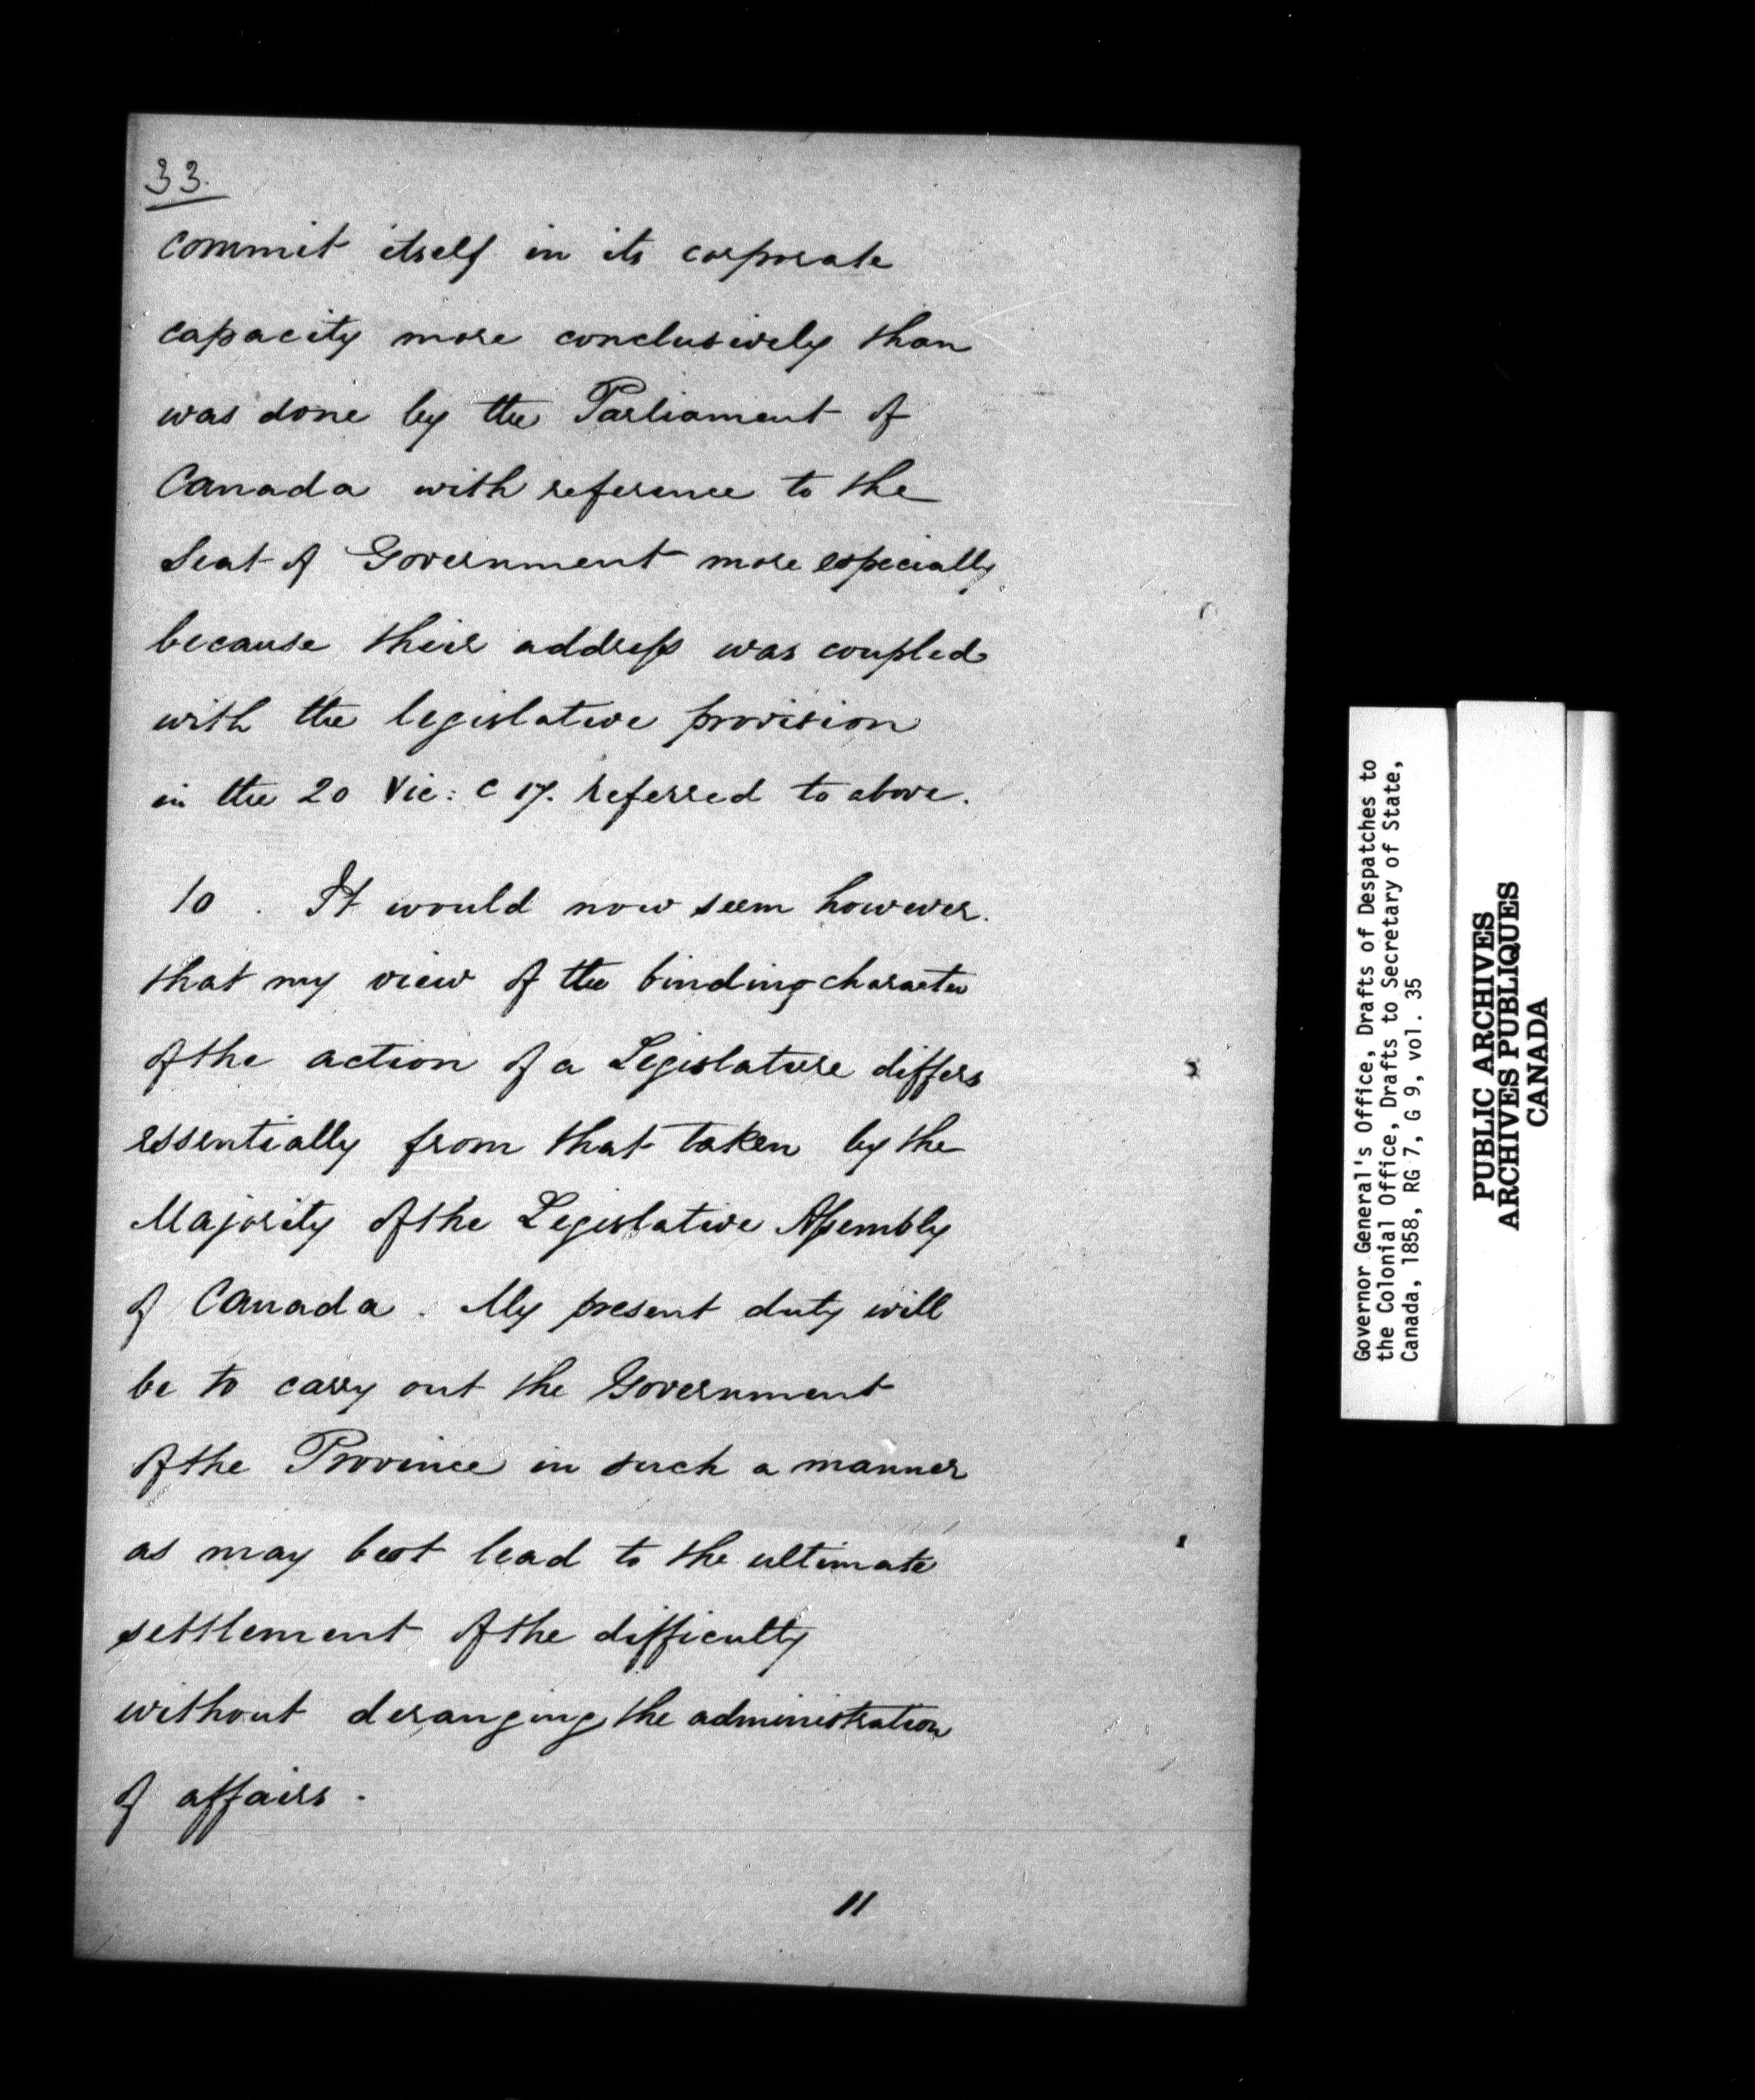 33.
commit itself in its corporate
capacity more conclusively than
was done by the Parliament of
Canada with reference to the
Seat of Government more especially
because their address was coupled
with the legislative provision
in the 20 Vic: C 17. referred to above.
10. It would now seem however.
that my view of the binding character
of the action of a Legislature differs
essentially from that taken by the
Majority of the Legislative Assembly
of Canada. My present duty will
be to carry out the Government
of the Province in such a manner
as may best lead to the ultimate
settlement of the difficulty
without deranging the administration
of affairs.
11
Governor General's Office, Drafts of Despatches to
the Colonial Office, Drafts to Secretary of State,
Canada, 1858, RG 7, G 9, vol. 35
PUBLIC ARCHIVES
ARCHIVES PUBLIQUES
CANADA